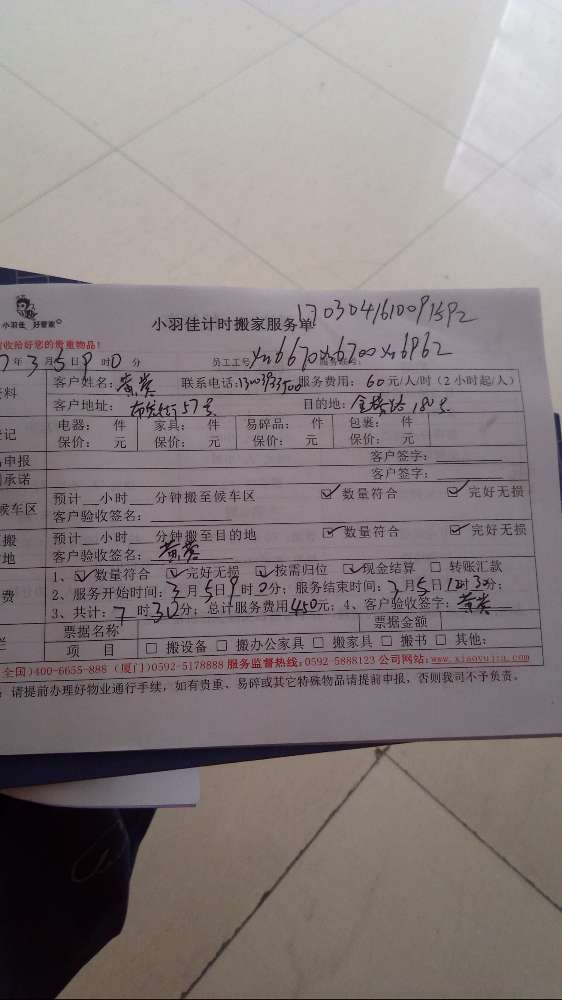 小羽佳 好管家
小羽佳计时搬家服务单
收拾好您的贵重物品!
7年3月5日9时0分 员工工号 xm6670xm6700xm6962
资料 客户姓名: 联系电话: 服务费用: 60元/人/时(2小时起/人)
客户地址: 57号 目的地: 180号
登记 电器: 件 家具: 件 易碎品: 件 包裹: 件
保价: 元 保价: 元 保价: 元 保价: 元
申报 客户签字:
承诺 客户签字:
候车区 预计 小时 分钟搬至候车区 ☑数量符合 ☑完好无损
客户验收签名:
搬 预计 小时 分钟搬至目的地 ☑数量符合 ☑完好无损
地 客户验收签名:
1、☑数量符合 ☑完好无损 ☑按需归位 ☑现金结算 □转账汇款
费 2、服务开始时间:3月5日9时0分;服务结束时间:3月5日12时30分;
3、共计:7时30分;总计服务费用450元;4、客户验收签字:
票据名称 票据金额
栏 项 目 □搬设备 □搬办公家具 □搬家具 □搬书 □其他:
全国)400-6655-888 (厦门)0592-5178888 服务监督热线:0592-5888123 公司网站:www.xiaoyujia.com
:请提前办理好物业通行手续,如有贵重、易碎或其它特殊物品请提前申报,否则我司不予负责。